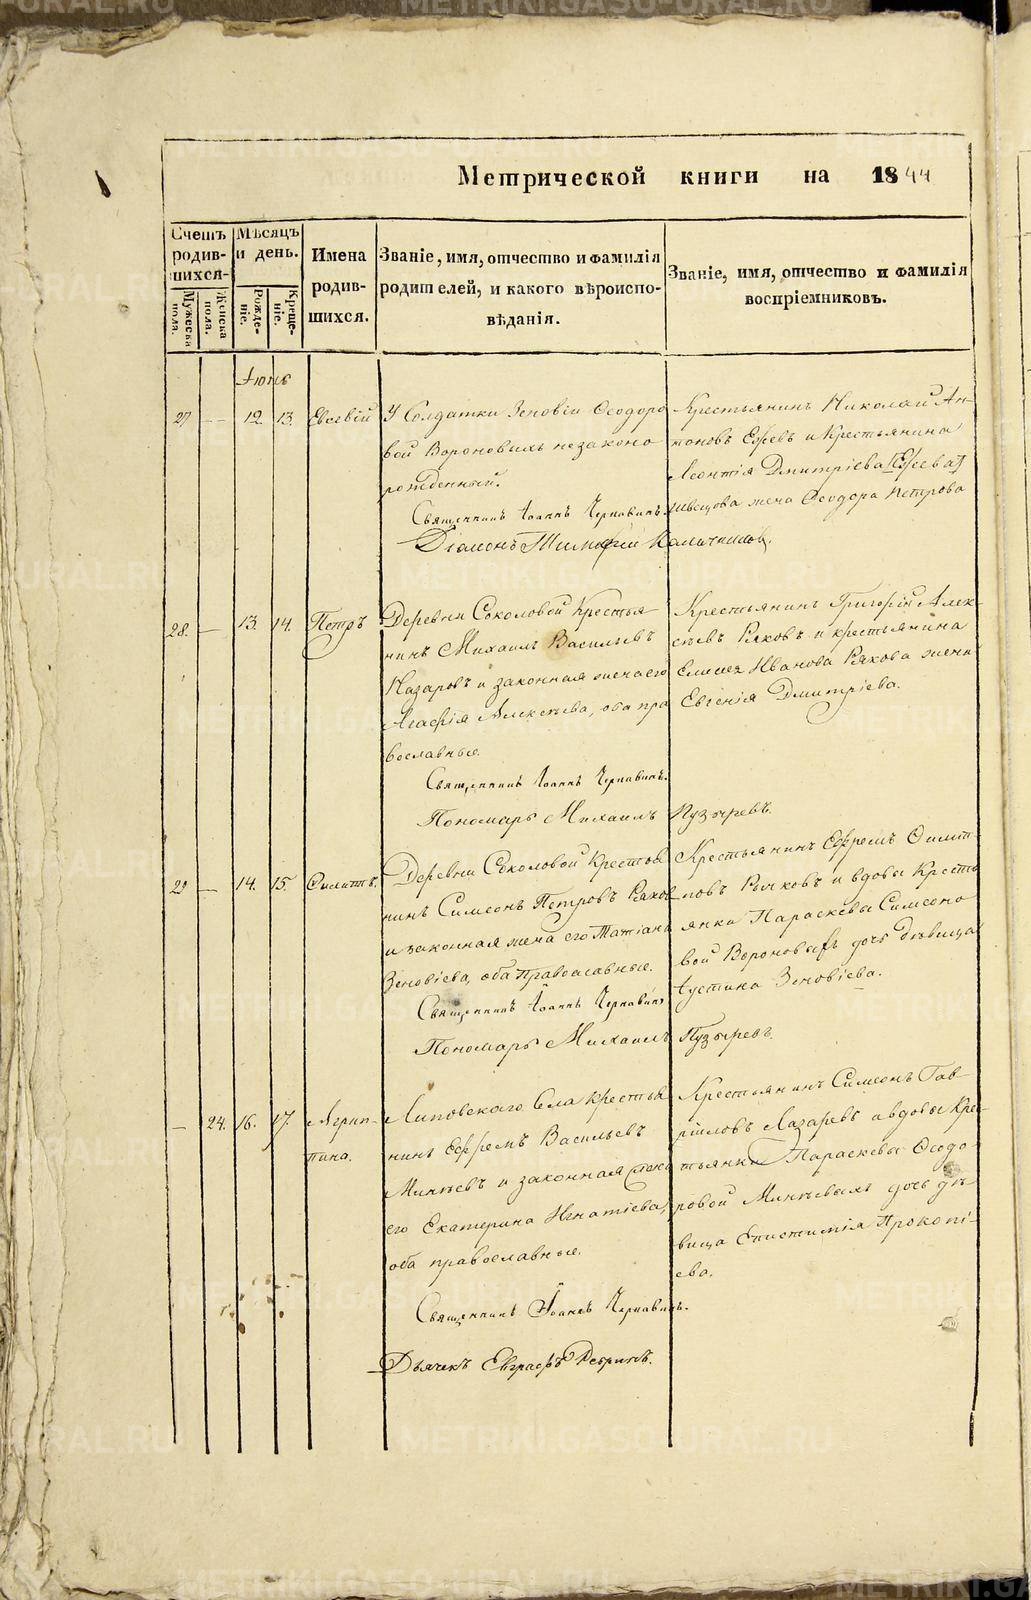 Метрической книги на 1844
Счетъ родив-шихся
Мужеска пола.
Женска пола.
Мѣсяцъ и день.
Рожде-ніе.
Креще-ніе.
Имена родив-шихся.
Званіе, имя, отчество и фамилія
родителей, и какого вѣроиспо-
вѣданія.
Званіе, имя, отчество и фамилія
воспріемниковъ.
27 — 12. 13. Евсевій
У Солдатки Зеновіи Ѳеодоро
вой Вороновыхъ незаконо
рожденный.
Священникъ Іоаннъ Чернавинъ.
Діаконъ
Крестьянинъ Николай Ан-
тоновъ и Крестьянина
Леонтія Дмитріева
жена Ѳеодора Петрова
28. — 13. 14. Петръ
Деревни Соколовой Крестья
нинъ Михаилъ Васильевъ
Назаровъ и законная жена его
Агафія Алексѣева, оба пра
вославные.
Священникъ Іоаннъ Чернавинъ.
Пономарь Михаилъ Пузыревъ.
Крестьянинъ Григорій Алек-
сѣевъ Ряковъ и крестьянина
Елисея Иванова Рякова жена
Евгенія Дмитріева.
29 — 14. 15. Филатъ.
Деревни Соколовой Крестья
нинъ Симеонъ Петровъ Ряков
и законная жена его Татіана
Зеновіева, оба Православные.
Священникъ Іоаннъ Чернавинъ
Пономарь Михаилъ Пузыревъ.
Крестьянинъ Ефремъ Филип-
повъ Рычковъ и вдовы Кресть
янки Параскевы Симеоно
вой Вороновыхъ дочь дѣвица
Іустина Зеновіева.
— 24. 16. 17. Агрип-
пина.
Липовскаго Села Крестья
нинъ Ефремъ Васильевъ
Минѣевъ и законная жена
его Екатерина Игнатіева,
оба православные.
Священникъ Іоаннъ Чернавинъ.
Дьячекъ Евграфъ
Крестьянинъ Симеонъ Гав-
риловъ Лазаревъ а вдовы Кре-
стьянки Параскевы Ѳеодо
ровой Минѣевыхъ дочь дѣ-
вица Епистимія Прокопі-
ева.
METRIKI.GASO-URAL.RU